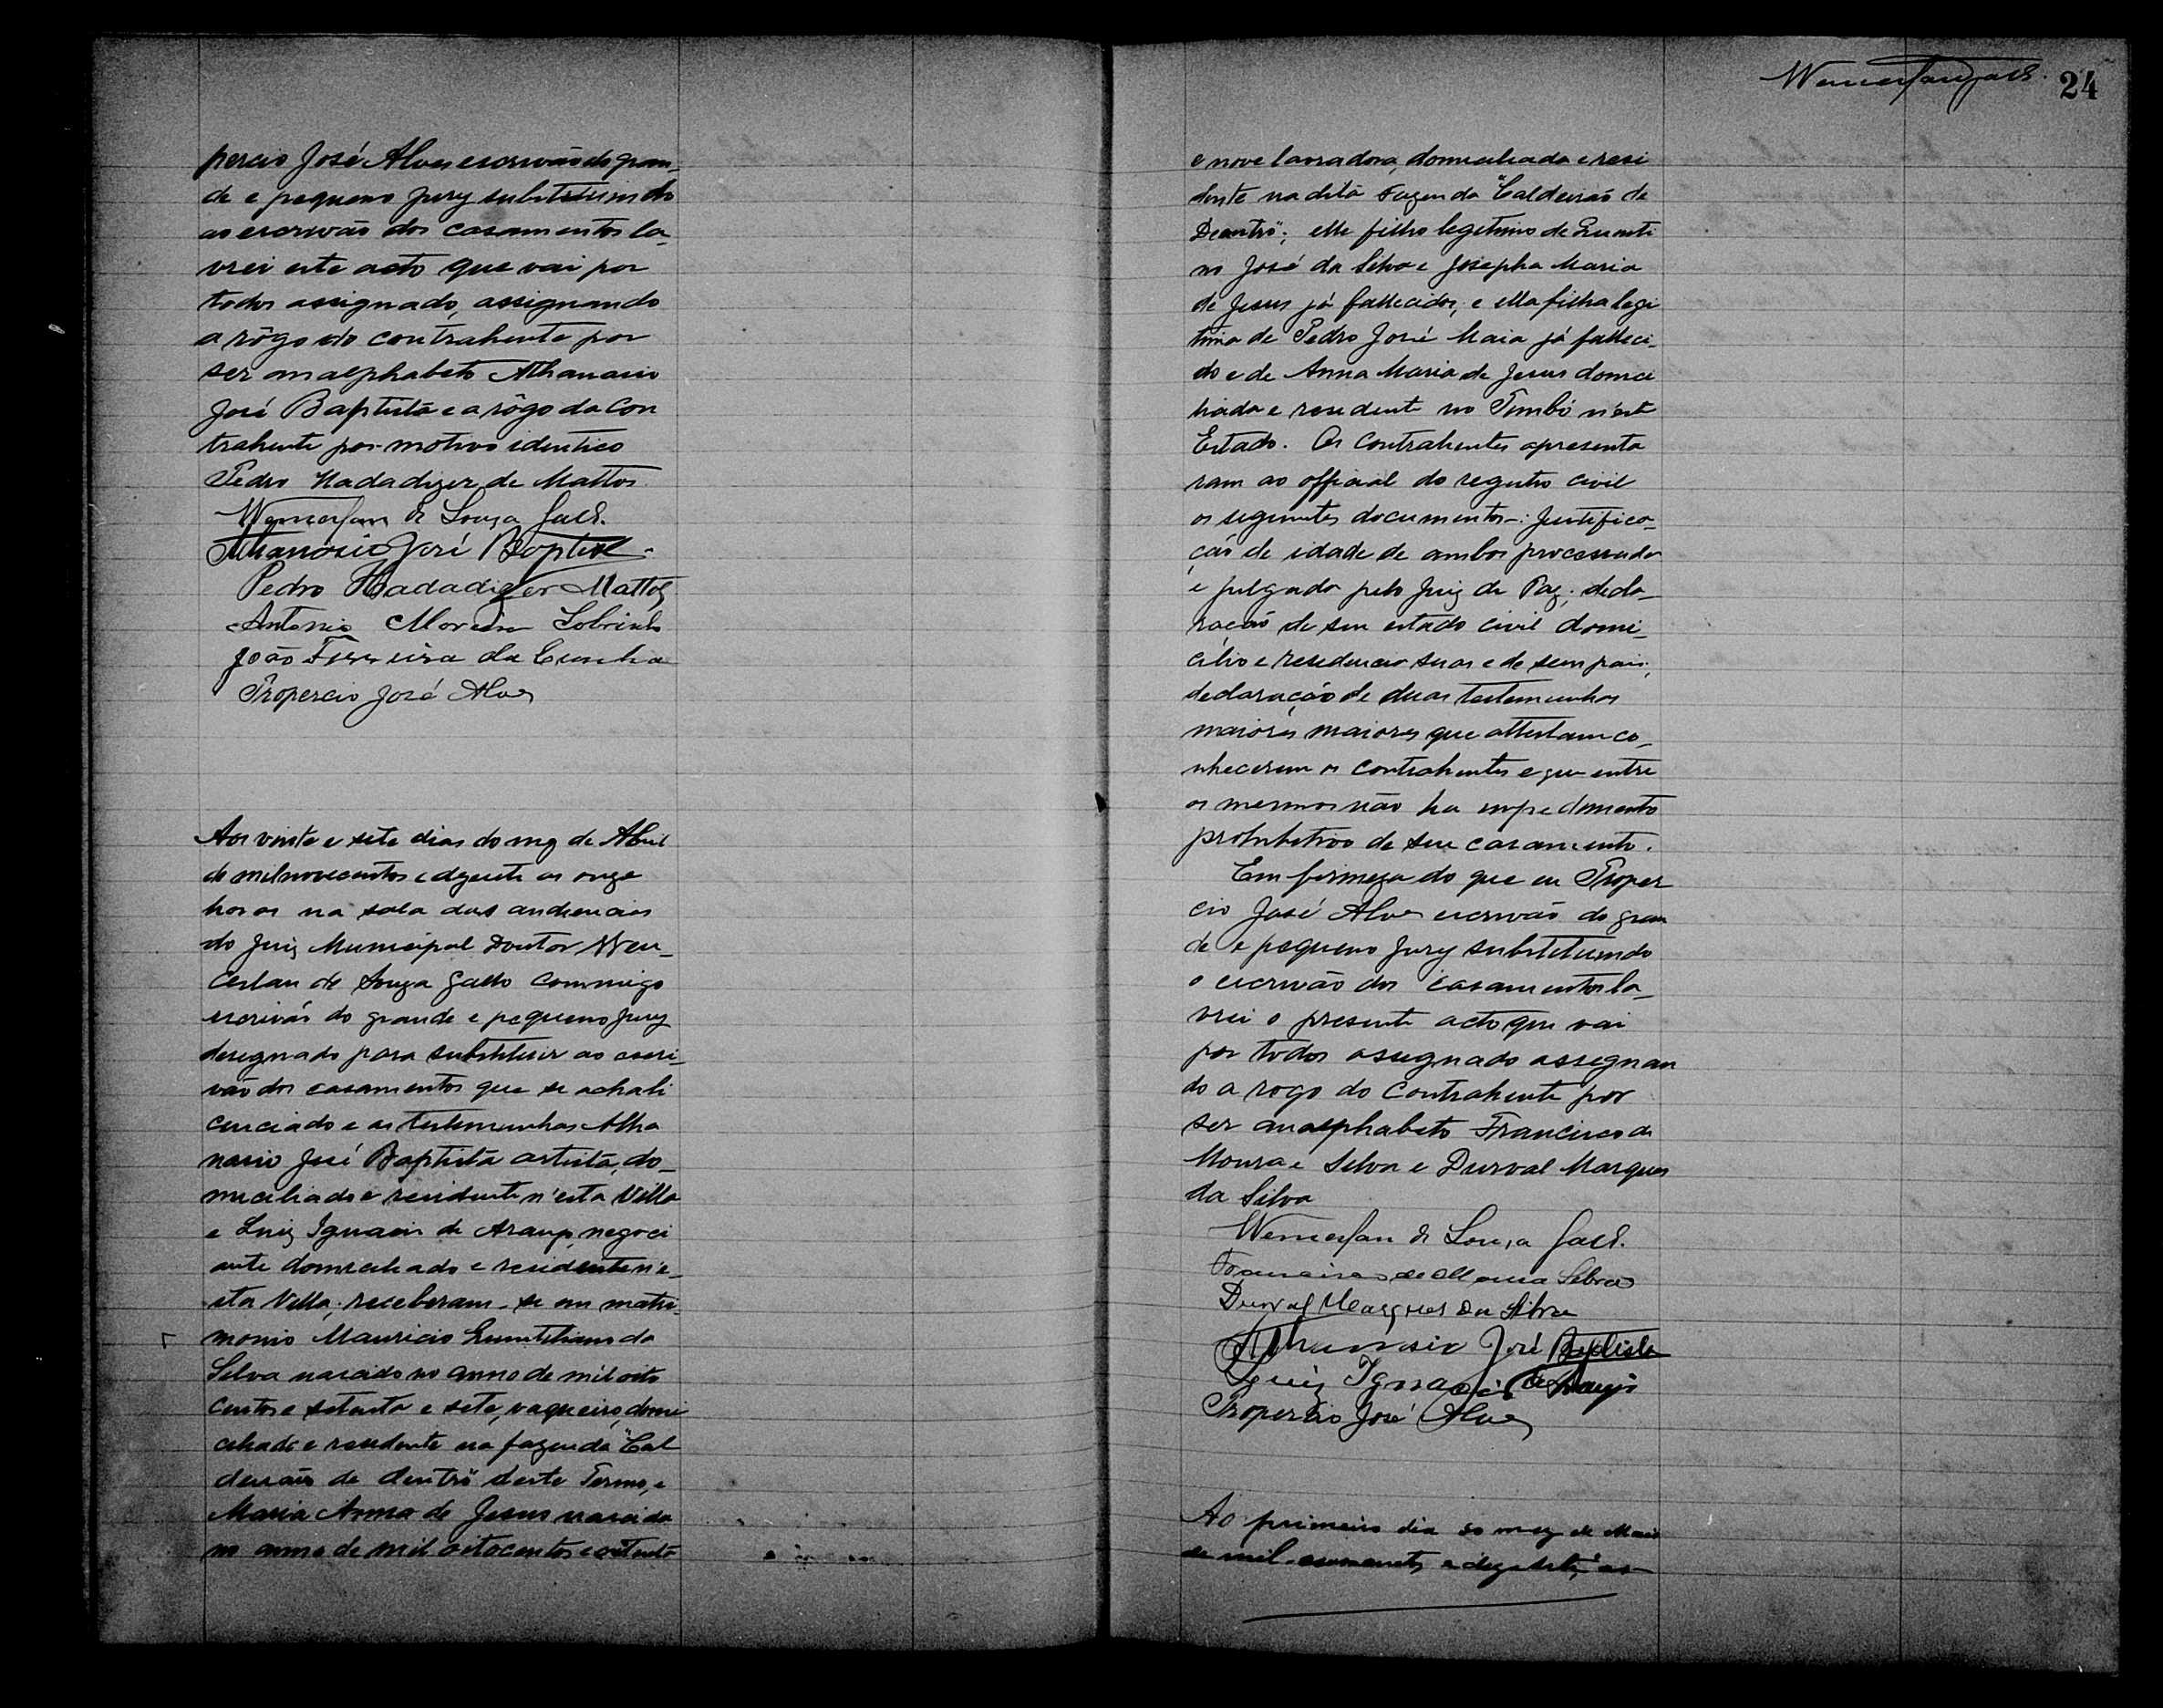 percio José Alves escrivão do gran-
de e pequeno Jury substituindo
ao escrivão dos casamentos la-
vrei este acto que vai por
todos assignado, assignando
a rôgo do contrahente por
ser analphabeto Athanasio
José Baptista e a rôgo da con
trahente por motivo identico
Pedro Nadadizer de Mattos
Wenceslau de Souza Gallo.
Athanasio José Baptista
Pedro Nadadizer Mattos
Antonio Moreira Sobrinho
João Ferreira da Cunha
Propercio José Alves
Aos vinte e sete dias do mez de Abril
de mil novecentos e dezesete as onze
horas na sala das audiencias
do Juiz Municipal Doutor Wen-
ceslau de Souza Gallo commigo
escrivão do grande e pequeno Jury
designado para substituir ao escri-
vão dos casamentos que se acha li
cenciado e as testemunhas Atha
nasio José Baptista artista, do-
miciliado e residente n'esta Villa
e Luiz Ignacio de Araujo, negoci
ante domiciliado e residente n'e-
sta Villa; receberam-se em matri-
monio Mauricio Quintiliano da
Silva nascido no anno de mil oito
centos e setenta e sete, vaqueiro, domi
ciliado e residente na fazenda "Cal
deirão de dentro" deste Termo, e
Maria Anna de Jesus nascida
no anno de mil oitocentos e oitenta
Wenceslau Gallo.
24
e nove lavradora, domiciliada e resi
dente na dita Fazenda "Caldeirão de
Deentro"; elle filho legitimo de Quinti
no José da Silva e Josepha Maria
de Jesus já fallecidos; e ella filha legi
tima de Pedro José Maia já falleci-
do e de Anna Maria de Jesus domici
liada e residente no Timbó n'este
Estado. Os contrahentes apresenta
ram ao official do registro civil
os seguintes documentos-: Justifica-
ção de idade de ambos processada
e julgada pelo Juiz de Paz; decla-
ração de seu estado civil domi-
cilio e residencia suas e de seus pais;
declaração de duas testemunhas
maiores maiores que attestam co-
nhecerem os contrahentes e que entre
os mesmos não ha impedimento
prohibitivo de seu casamento.
Em firmeza do que eu Proper
cio José Alves escrivão do gran
de e pequeno Jury substituindo
o escrivão dos casamentos la-
vrei o presente acto que vai
por todos assignado assignan
do a rogo do contrahente por
ser analphabeto Francisco de
Moura e Silva e Durval Marques
da Silva
Wenceslau de Souza Gallo.
Francisco de Moura Silva
Durval Marques da Silva
Athanasio José Baptista
Luiz Ignacio de Araujo
Propercio José Alves
Ao primeiro dia do mez de Maio
de mil novecentos e dezesete, as